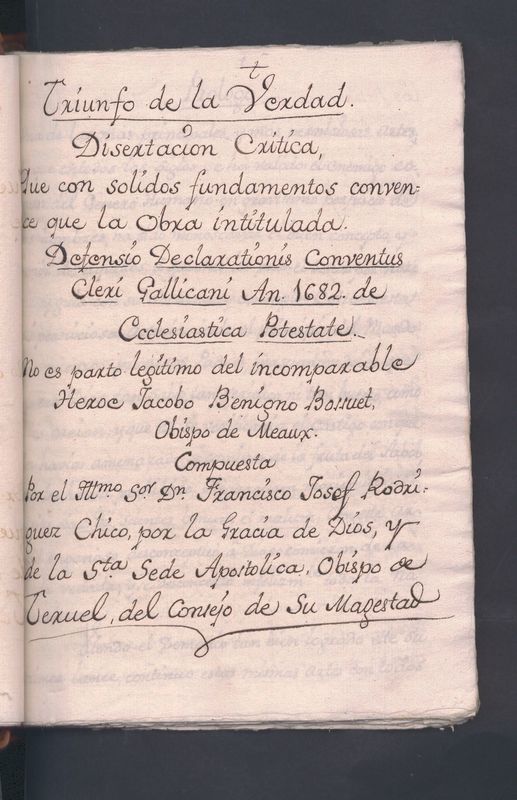 Triunfo de la Verdad.
Disertacion Critica,
Que con solidos fundamentos conven=
ce que la Obra intitulada.
Defensio Declarationis Conventus
Cleri Gallicani An. 1682. de
Ecclesiastica Potestate.
No es parto legitimo del incomparable
Heroe Jacobo Benigno Bossuet,
Obispo de Meaux.
Compuesta
Por el Illmo. Sor. Dn. Francisco Josef Rodri=
guez Chico, por la Gracia de Dios, y
de la Sta. Sede Apostolica, Obispo de
Teruel, del Consejo de Su Magestad